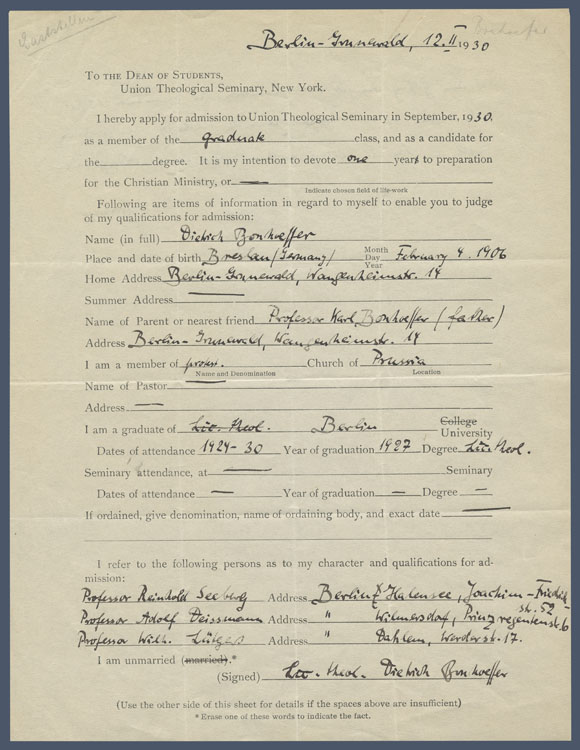 Berlin-Grunewald, 12. II 1930
TO THE DEAN OF STUDENTS,
Union Theological Seminary, New York.
I hereby apply for admission to Union Theological Seminary in September, 1930.
as a member of the graduate class, and as a candidate for
the degree. It is my intention to devote one years to preparation
for the Christian Ministry, or —
Indicate chosen field of life-work
Following are items of information in regard to myself to enable you to judge
of my qualifications for admission:
Name (in full) Dietrich Bonhoeffer
Place and date of birth Breslau (Germany) Month Day Year February 4. 1906
Home Address Berlin-Grunewald, Wangenheimstr. 14
Summer Address —
Name of Parent or nearest friend Professor Karl Bonhoeffer (father)
Address Berlin-Grunewald, Wangenheimstr. 14
I am a member of protest. Church of Prussia
Name and Denomination Location
Name of Pastor —
Address —
I am a graduate of Lic. theol. Berlin College University
Dates of attendance 1924-30 Year of graduation 1927 Degree Lic. theol.
Seminary attendance, at — Seminary
Dates of attendance — Year of graduation — Degree —
If ordained, give denomination, name of ordaining body, and exact date —
I refer to the following persons as to my character and qualifications for ad-
mission:
Professor Reinhold Seeberg Address Berlin Halensee, Joachim-Friedrich-
str. 52
Professor Adolf Deissmann Address " Wilmersdorf, Prinzregentenstr. 6
Professor Wilh. Lütgert Address " Dahlem, Werderstr. 17.
I am unmarried (married).*
(Signed) Lic. theol. Dietrich Bonhoeffer
(Use the other side of this sheet for details if the spaces above are insufficient)
* Erase one of these words to indicate the fact.